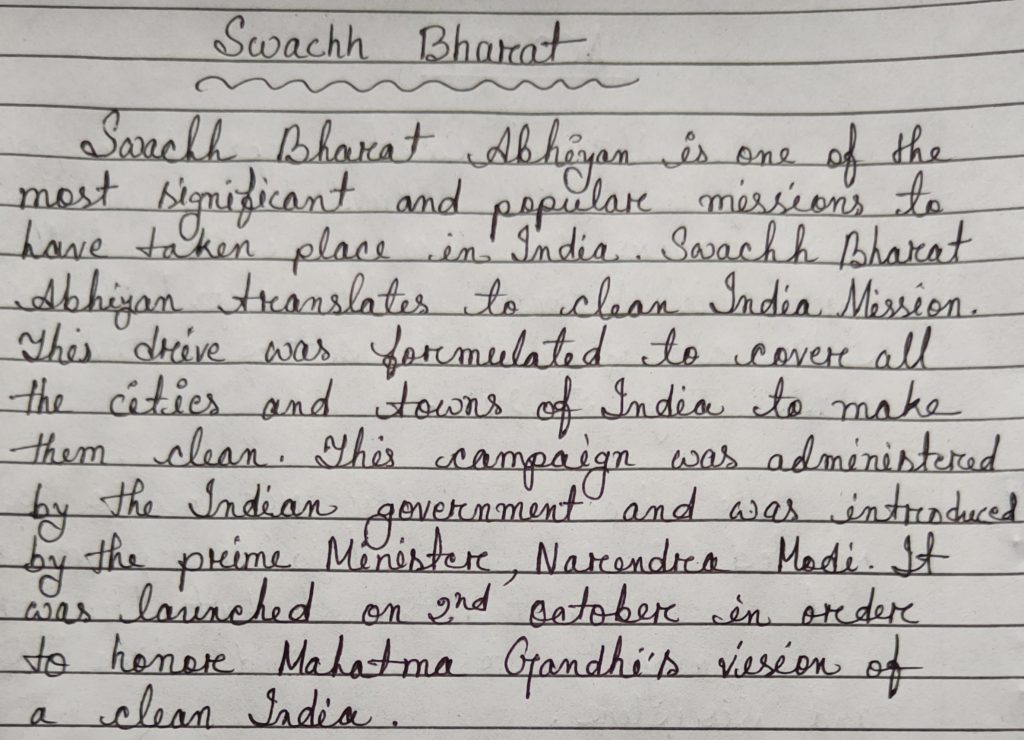 Swachh Bharat
Swachh Bharat Abhiyan is one of the
most significant and popular missions to
have taken place in India. Swachh Bharat
Abhiyan translates to clean India Mission.
This drive was formulated to cover all
the cities and towns of India to make
them clean. This campaign was administered
by the Indian government and was introduced
by the prime Minister, Narendra Modi. It
was launched on 2nd october in order
to honor Mahatma Gandhi's vision of
a clean India.